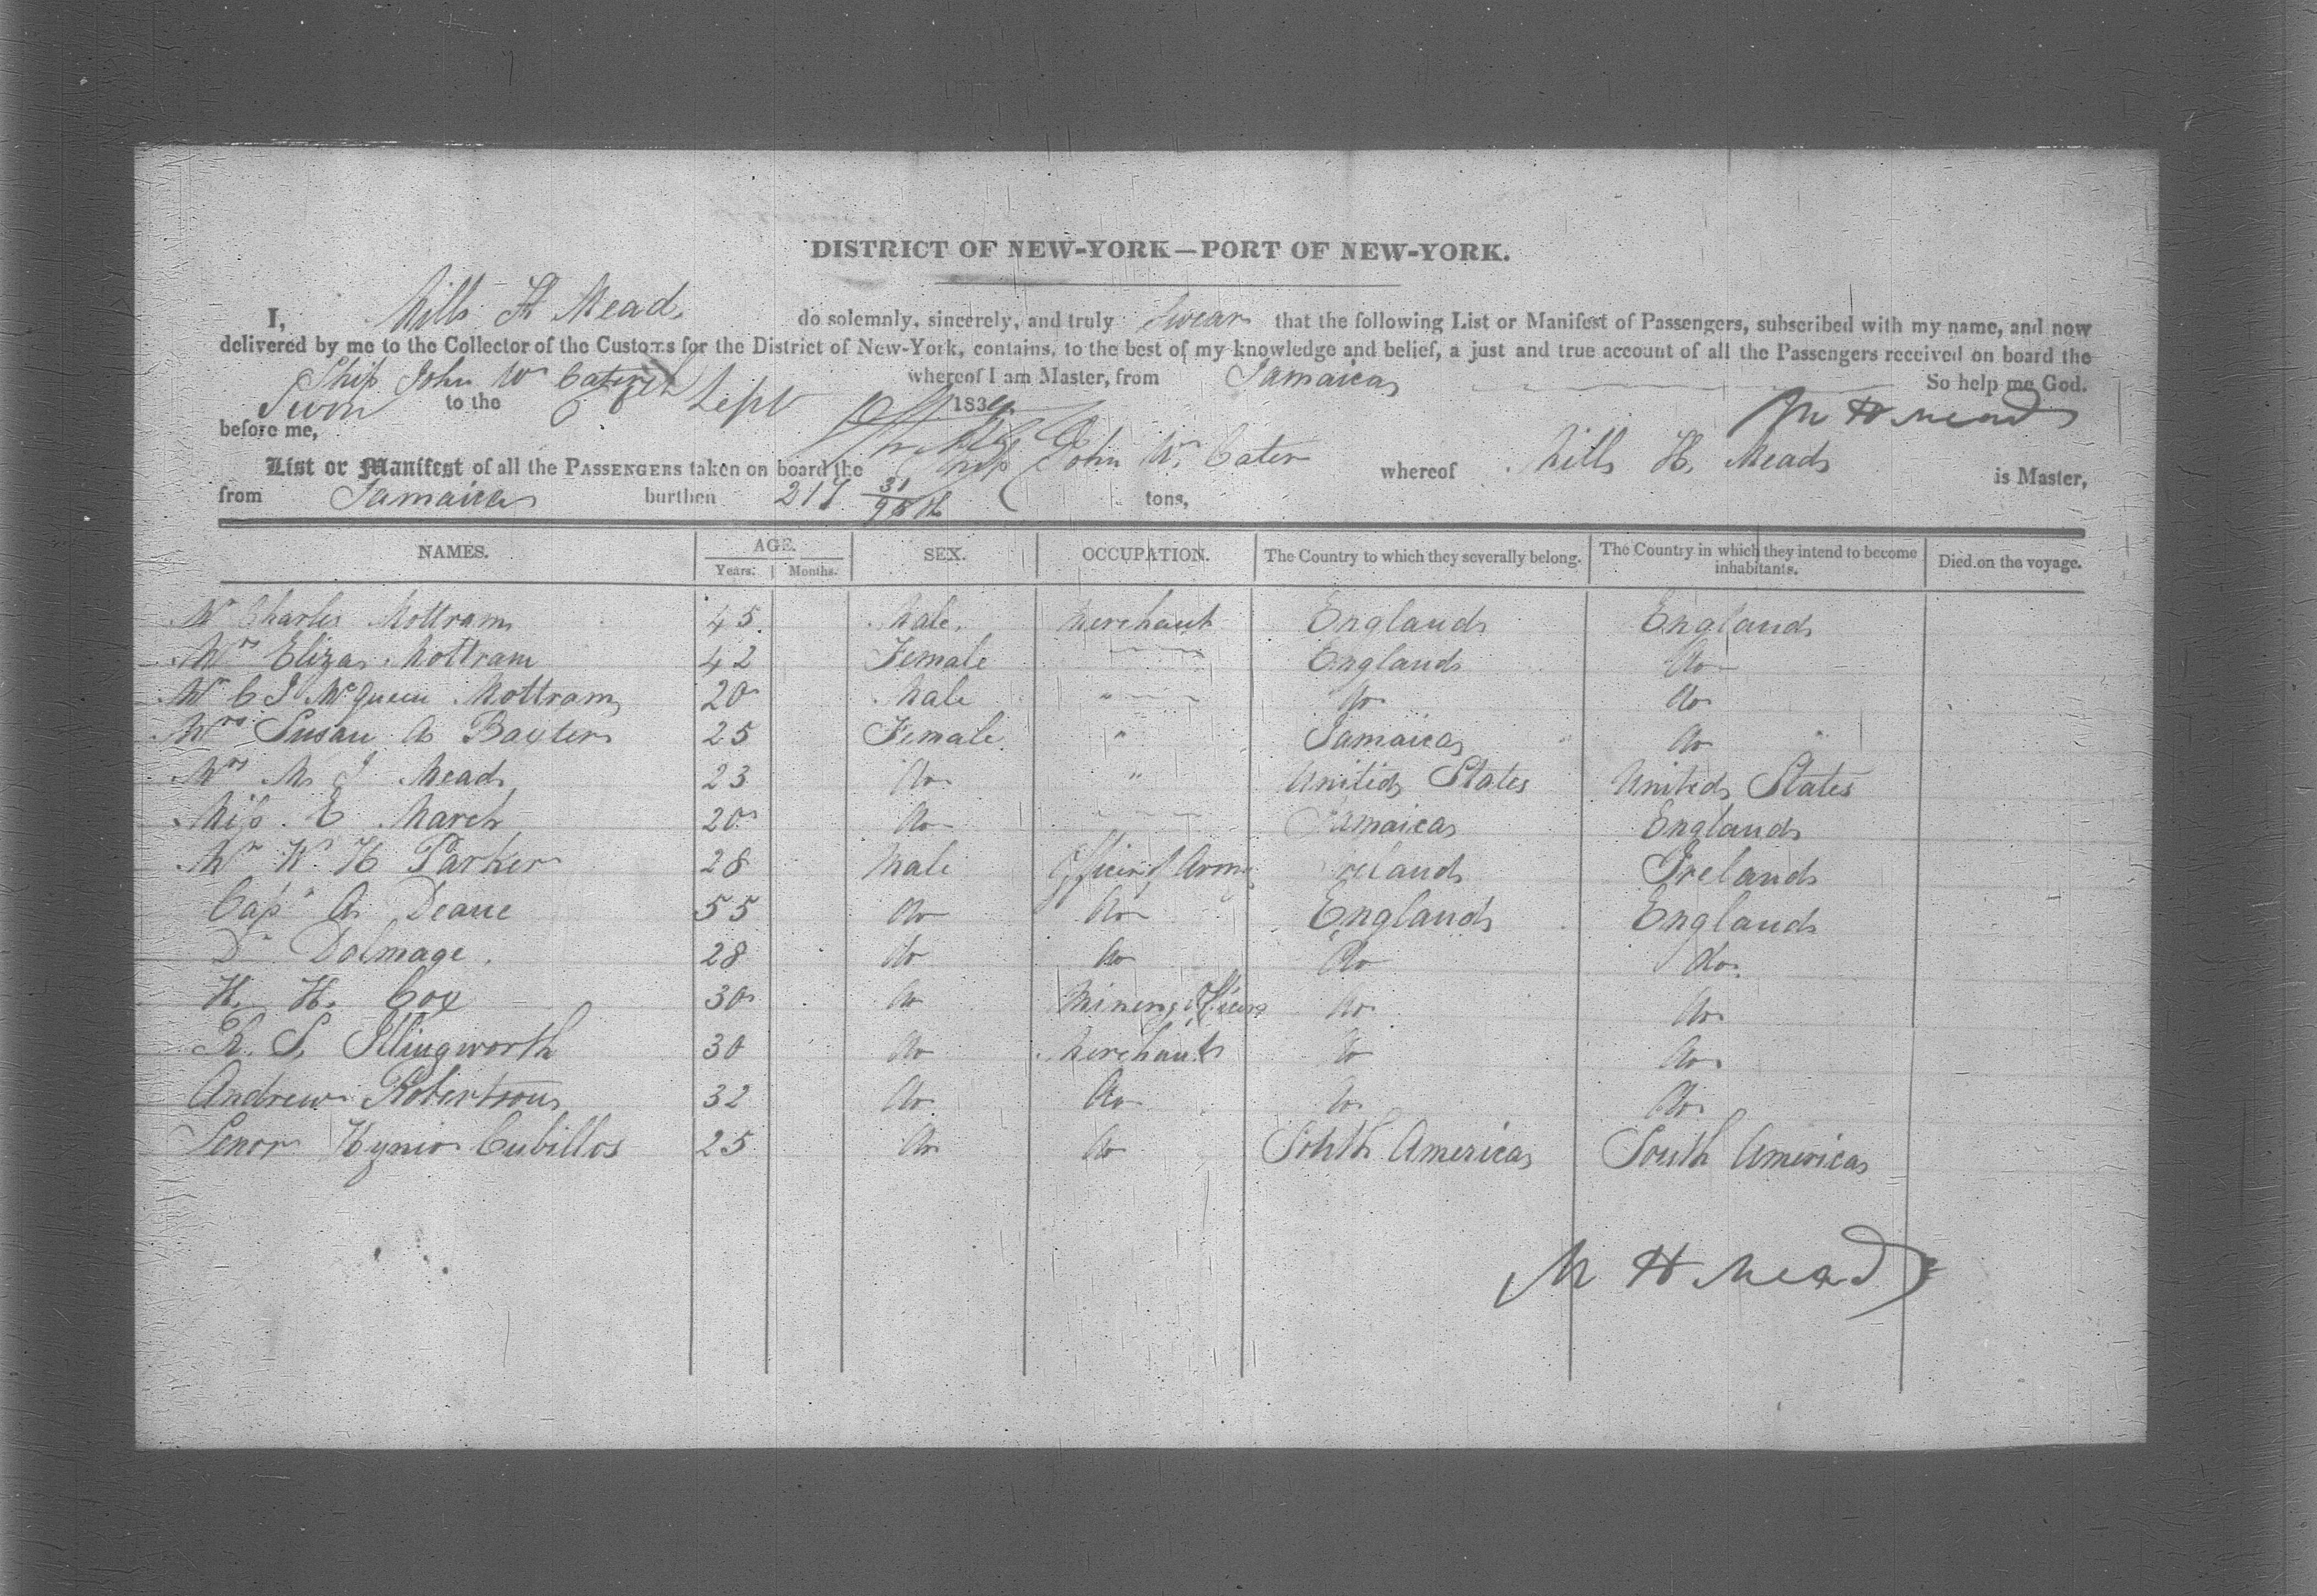 DISTRICT OF NEW-YORK—PORT OF NEW-YORK.
I, Mills H Mead do solemnly, sincerely, and truly Swear that the following List or Manifest of Passengers, subscribed with my name, and now
delivered by me to the Collector of the Customs for the District of New-York, contains, to the best of my knowledge and belief, a just and true account of all the Passengers received on board the
Ship John W Cater whereof I am Master, from Jamaica So help me God.
Sworn to the Sept 183
before me, M H Mead
List or Manifest of all the PASSENGERS taken on board the Ship John W. Cater whereof Mills H. Mead is Master,
from Jamaica burthen 217 31/95th tons,
NAMES. AGE. Years. Months. SEX. OCCUPATION. The Country to which they severally belong. The Country in which they intend to become inhabitants. Died on the voyage.
Mr Charles Mottram 45 Male Merchant England England
Mrs Eliza Mottram 42 Female England do
Mr C J McQueen Mottram 20 Male " do do
Mrs Susan A Baxter 25 Female " Jamaica do "
Mrs M J Mead 23 do " United States United States
Miss E March 20 do Jamaica England
Mr W H Parker 28 Male Officer of Army Ireland Ireland
Capt A Deane 55 do do England England
Dr Dolmage 28 do do do do
H. H. Cox 30 do Mining Officer do do
R. S. Illingworth 30 do Merchant do do
Andrew Robertson 32 do do do do
Senor Hynio Cubillos 25 do do South America South America
M H Mead